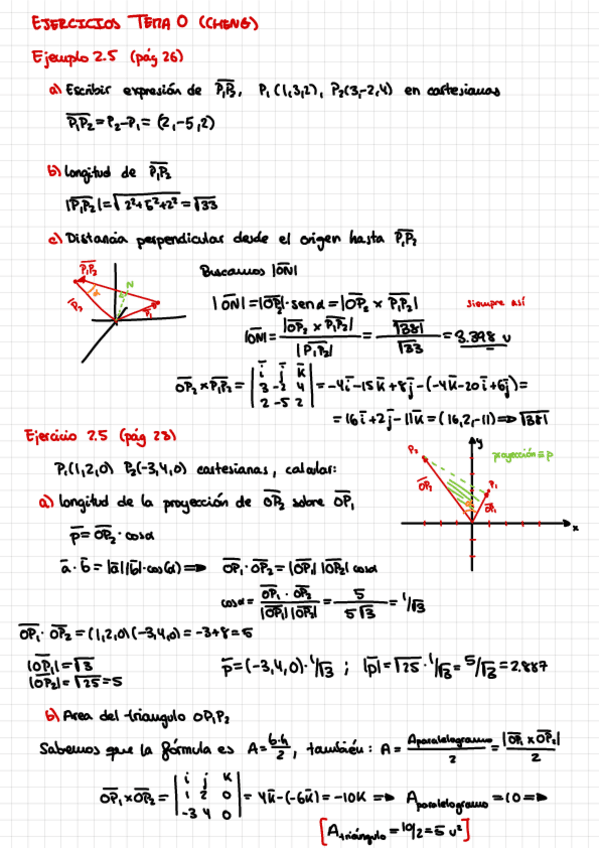 EJERCICIOS TEMA 0 (CHENG)
Ejemplo 2.5 (pág 26)
a) Escribir expresión de P₁P₂, P₁(1,3,2), P₂(3,-2,4) en cartesianas
P₁P₂ = P₂-P₁ = (2,-5,2)
b) Longitud de P₁P₂
|P₁P₂| = √2²+5²+2² = √33
c) Distancia perpendicular desde el origen hasta P₁P₂
P₁P₂
α
N
P₂
P₁
Buscamos |ON|
|ON| = |OP₂|·sen α = |OP₂ x P₁P₂|
siempre así
|ON| = |OP₂ x P₁P₂| / |P₁P₂| = √381 / √33 = 3.398 u
OP₂ x P₁P₂ = | i j k | = -4i-15k+8j-(-4k-20i+6j) =
3 -2 4
2 -5 2
= 16i+2j-11k = (16,2,-11) => √381
Ejercicio 2.5 (pág 23)
P₁(1,2,0) P₂(-3,4,0) cartesianas, calcular:
y
P₂
proyección = p
P₁
OP₂
OP₁
x
a) longitud de la proyección de OP₂ sobre OP₁
p = OP₂ · cos α
a · b = |a||b|·cos(α) => OP₁ · OP₂ = |OP₁| |OP₂| cos α
cos α = OP₁ · OP₂ / |OP₁| |OP₂| = 5 / 5√3 = 1/√3
OP₁ · OP₂ = (1,2,0)(-3,4,0) = -3+8 = 5
|OP₁| = √3
|OP₂| = √25 = 5
p = (-3,4,0)·1/√3 ; |p| = √25 · 1/√3 = 5/√3 = 2.887
b) Area del triangulo OP₁P₂
Sabemos que la fórmula es A = b·h/2, también: A = Aparalelogramo / 2 = |OP₁ x OP₂| / 2
OP₁ x OP₂ = | i j k | = 4k-(-6k) = -10k => Aparalelogramo = 10 =>
1 2 0
-3 4 0
[Atriángulo = 10/2 = 5 u²]